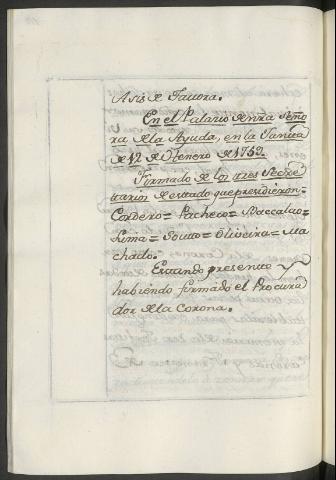 Asis de Tavora.
En el Palacio de nra Seño
ra de la Ayuda, en la Junta
de 12 de Henero de 1759.
Firmado de los tres Secre
tarios de estado que presidieron=
Cordero= Pacheco= Baccalao=
Lima= Souto= Oliveira= Ma
chado.
Estando presente y
habiendo firmado el Procura
dor de la Corona.